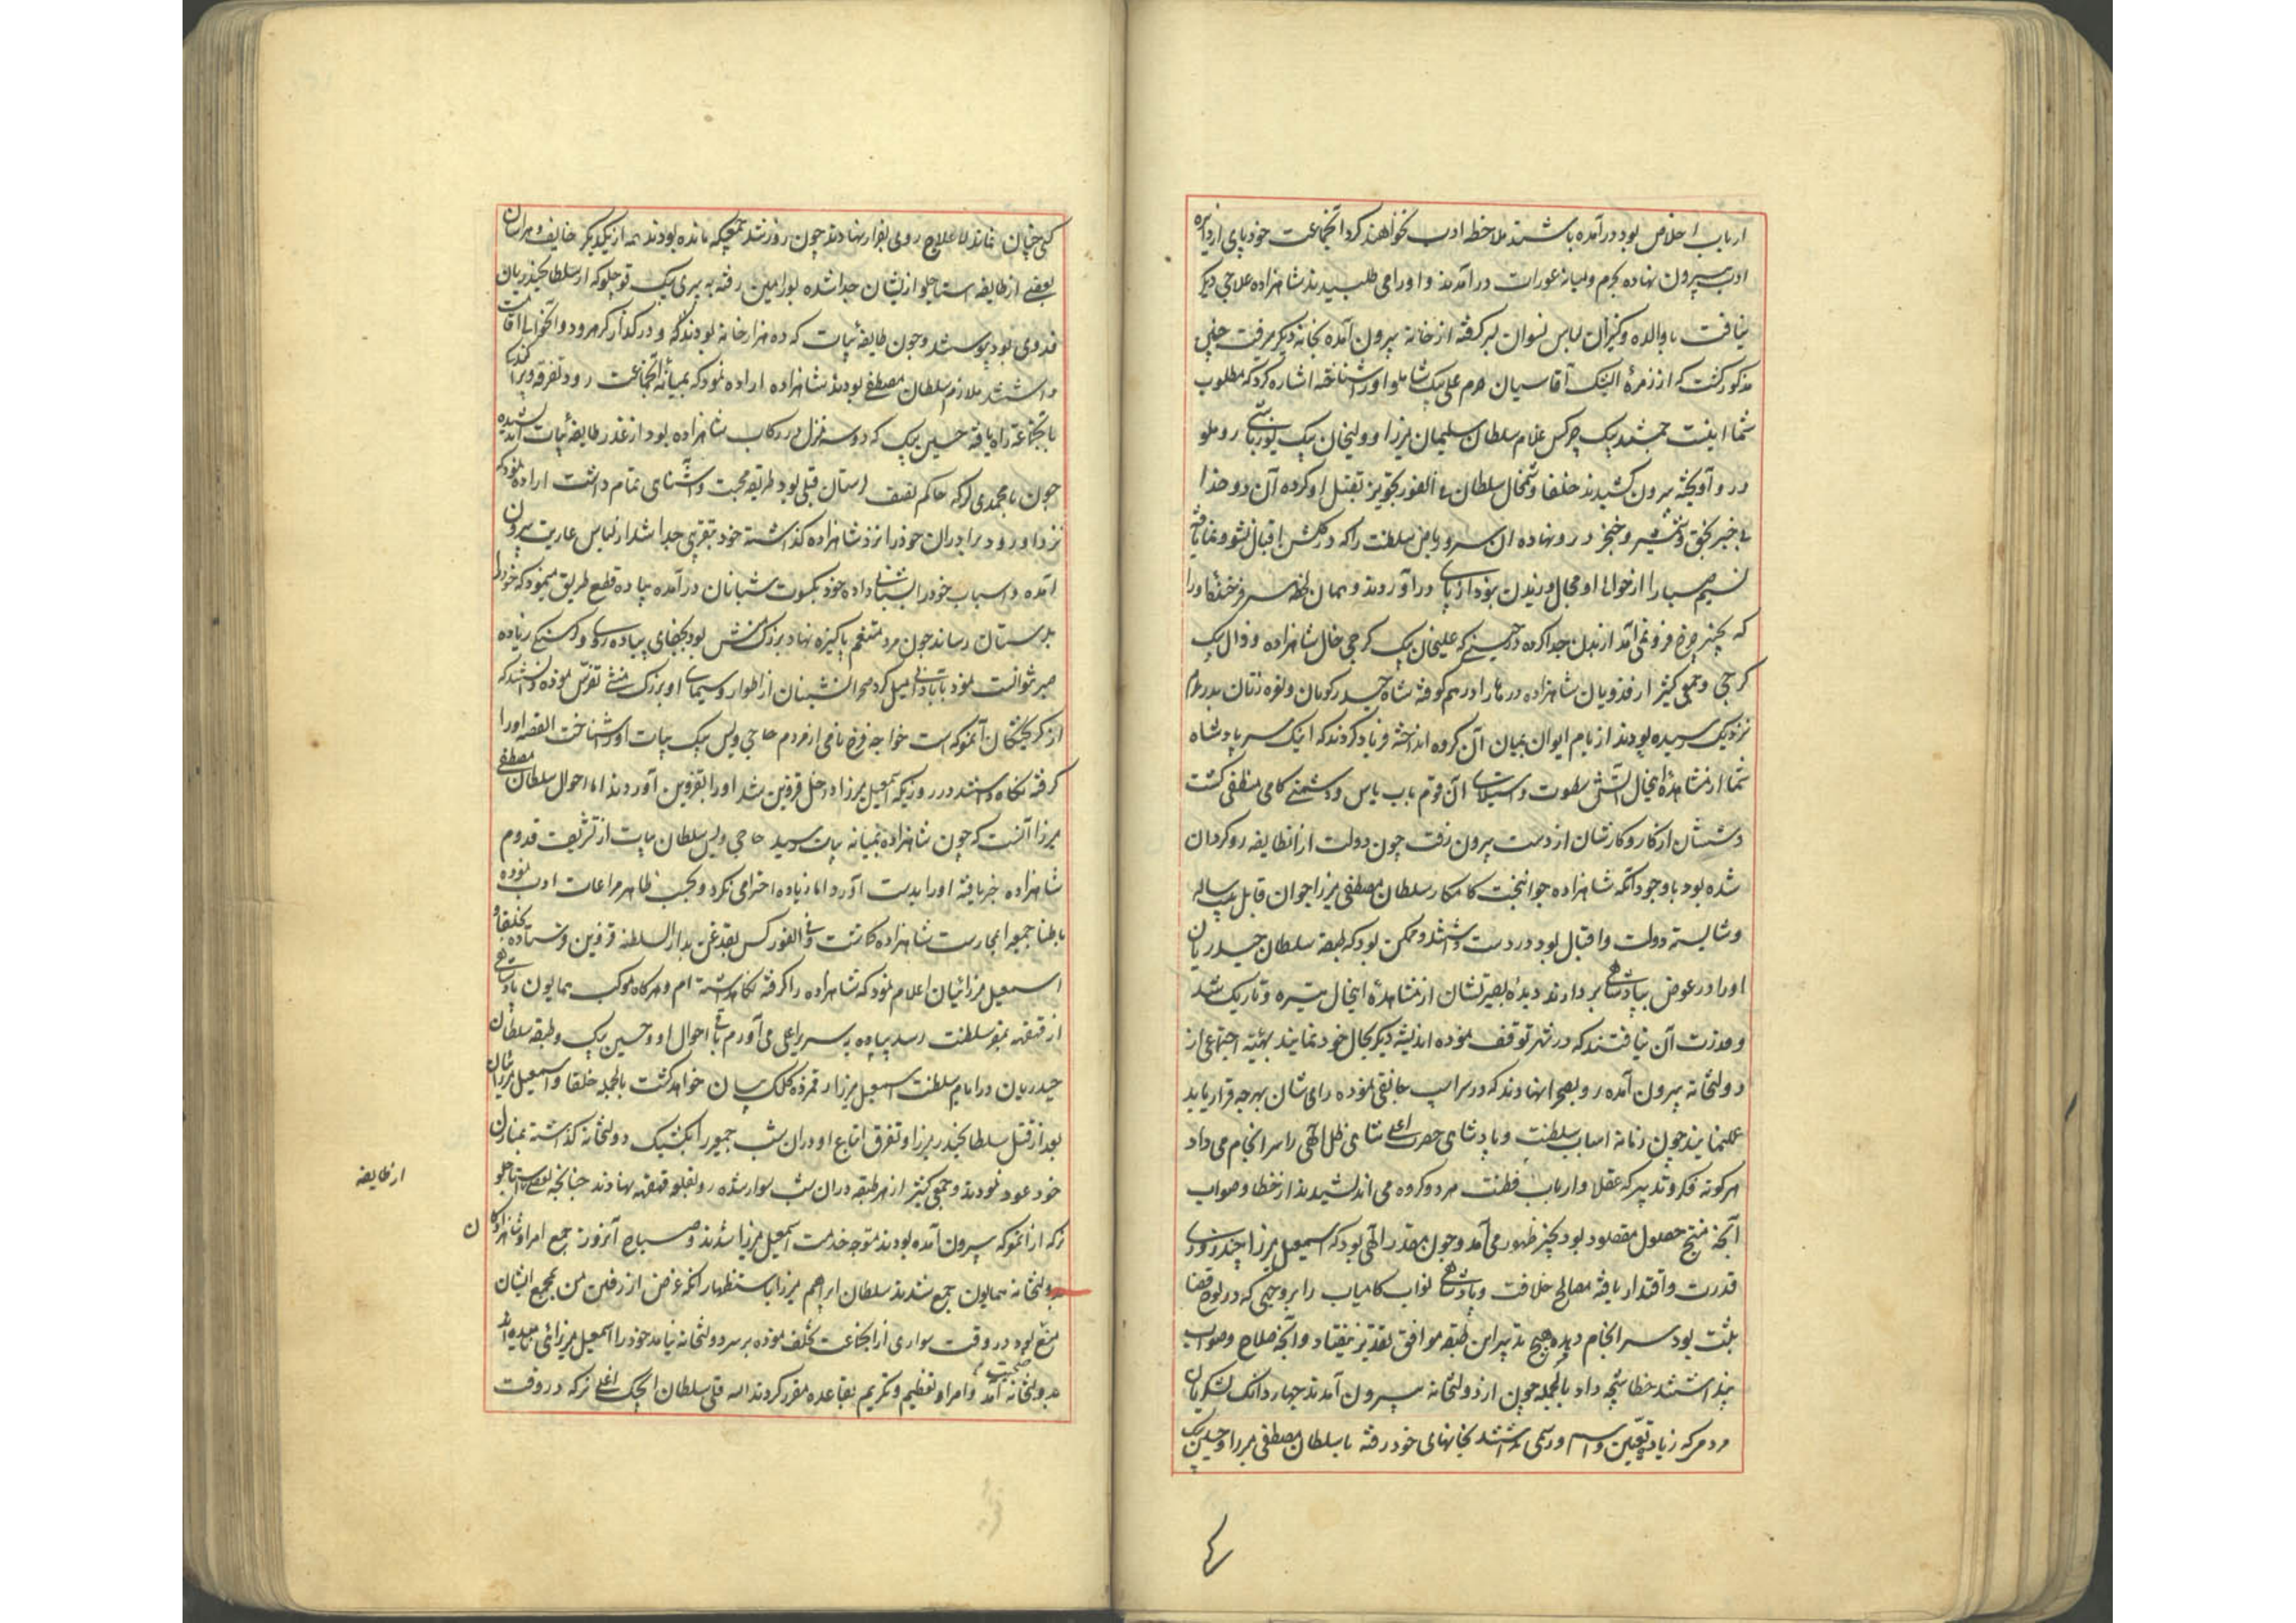 ارباب اخلاص بود درآمده باشند ملاحظه ادب نخواهند کرد آنجماعت خود پای از دایره
ادب بیرون نهاده بحرم و میانه عورات درآمدند و او را می طلبیدند شاهزاده علاجی دیگر
نیافت با والده و کنیزان لباس نسوان در بر گرفته از خانه بیرون آمده بخانه دیگر میرفت چنین
مذکور گشت که از زمرهٔ ایشک آقاسیان حرم علی بیک شاملو او را شناخته اشاره کرد که مطلوب
شما اینست جمشید بیک چرکس غلام سلطان سلیمان میرزا و ولیخان بیک یوزباشی روملو
در و آویخته بیرون کشیدند خلفا و شمخال سلطان فی الفور تجویز بقتل او کرده آن دو خدا
بی خبر بحق شمشیر و خنجر درو نهاده آن سرو ریاض سلطنت را که در گلشن اقبال نشو و نما یافته
نسیم صبا را از حوالی او مجال وزیدن نبود از پای درآوردند و همان لحظه سر فرخنده او را
که بچنبر چرخ فرو نمی آمد از بدن جدا کرده در حینی که علیخان بیک گرجی خال شاهزاده و زال بیک
گرجی و جمعی کثیر از فدویان شاهزاده درها را درهم کوفته شاه حیدر گویان و نعره زنان بدر حرم
نزدیک رسیده بودند از بام ایوان بمیان آن گروه انداخته فریاد کردند که اینک سر پادشاه
شما از مشاهدهٔ اینحال آتش سطوت و استیلای آن قوم بآب یاس و دشمن کامی منطفی گشت
دستشان از کار و کارشان از دست بیرون رفت چون دولت از انطایفه روگردان
شده بود با وجود آنکه شاهزاده جوانبخت کامکار سلطان مصطفی میرزا جوان قابل ساله
و شایسته دولت و اقبال بود در دست داشتند و ممکن بود که طبقه سلطان حیدریان
او را در عوض بپادشاهی بردارند دیدهٔ بصیرتشان از مشاهدهٔ اینحال تیره و تاریک شد
و فرصت آن نیافتند که در شهر توقف نموده اندیشه دیگر بحال خود نمایند بهیئت اجتماعی از
دولتخانه بیرون آمده رو بصحرا نهادند که در سراب جانقی نموده رای شان بهرچه قرار یابد
عمل نمایند چون زمانه اسباب سلطنت و پادشاهی حضرت اعلی شاهی ظل الهی را سرانجام می داد
هر گونه فکر و تدبیر که عقلا و ارباب فطنت هر دو گروه می اندیشیدند از خطا و صواب
آنچه منتج حصول مقصود بود بحیز ظهور می آمد و چون مقدر الهی بود که اسمعیل میرزا چند روزی
قدرت و اقتدار یافته مصالح خلافت و پادشاهی نواب کامیاب را بروجهی که در لوح قضا
مثبت بود سرانجام دهد هیچ تدبیر این طبقه موافق تقدیر نیفتاد و آنچه صلاح و صواب
پنداشتند خطا نتیجه داد بالجمله چون از دولتخانه بیرون آمدند چهار دانگ لشکریان
مردم که زیاده تعین و اسم و رسمی نداشتند بخانهای خود رفته با سلطان مصطفی میرزا و حسین بیک
کسی چنان نماند لاعلاج روی بفرار نهادند چون روز شد جمعی که مانده بودند همه از یکدیگر خایف و هراسان
بعضی از طایفه استاجلو از ایشان جدا شده بورامین رفته به پیری بیک قوچلو که از سلطانحیدریان
فدوی بود پیوستند و چون طایفه بیات که ده هزار خانه بودند که در کزاز و کرهرود و آنحوالی اقامت
داشتند ملازم سلطان مصطفی بودند شاهزاده اراده نمود که بمیانهٔ آنجماعت رود تفرقه
بآنجماعه راه یافته حسین بیک که دو سه منزل در رکاب شاهزاده بود از غدر طایفه بیات اندیشیده
چون با محمدی لر که حاکم نصف لرستان قبلی بود طریقه محبت و آشنائی تمام داشت اراده نمود که
نزد او رود برادران خود را نزد شاهزاده گذاشته خود بتقریبی جدا شد از لباس عاریت بیرون
آمده و اسباب خود را بشبانی داده خود بکسوت شبانان درآمده پیاده قطع طریق مینمود که خود را
بلرستان رساند چون مرد متنعم پاکیزه نهاد بزرگ منش بود بجفای پیاده روی و گرسنگی زیاده
صبر نتوانست نمود بآبادانی میل کرد صحرانشینان از اطوار و سیمای او بزرگ منشی تفرس نموده دانستند که
از گریختگان آنمعرکه است خواجه فرخ نامی از مردم حاجی ویس بیک بیات او را شناخت القصه او را
گرفته نگاه داشتند در روزیکه اسمعیل میرزا داخل قزوین شد او را بقزوین آوردند اما احوال سلطان مصطفی
میرزا آنست که چون شاهزاده بمیانه بیات رسید حاجی ویس سلطان بیات از تشریف قدوم
شاهزاده خبر یافته او را بدست آورد اما زیاده احترامی نکرد و بحسب ظاهر مراعات ادب نموده
باطنا جمعی را بحارست شاهزاده گماشت و فی الفور کس بقدغن بدار السلطنه قزوین فرستاده بخلفا و
اسمعیل میرزائیان اعلام نمود که شاهزاده را گرفته نگاهداشته ام و هرگاه موکب همایون پادشاهی
از قهقهه بمقر سلطنت رسد بپایه سریر اعلی می آورم باقی احوال او و حسین بیک و طبقه سلطان
حیدریان در ایام سلطنت اسمعیل میرزا رقمزده کلک بیان خواهد گشت بالجمله خلفا و اسمعیل میرزائیان
بعد از قتل سلطانحیدر میرزا و تفرق اتباع او در ان شب جمعی را بکشیک دولتخانه گذاشته بمنازل
خود عود نمودند و جمعی کثیر از هر طبقه دران شب سوار شده رو بقلعه قهقهه نهادند چنانچه بعضی استاجلو
از طایفه
که از انمعرکه بیرون آمده بودند متوجه خدمت اسمعیل میرزا شدند و صباح آنروز جمیع امرا و شاهزادکان
بدولتخانه همایون جمع شدند سلطان ابراهیم میرزا باستظهار آنکه غرض از رفتن من بمجمع ایشان
منع بود در وقت سواری از آنجماعت تخلف نموده بر سر دولتخانه نیامد خود را اسمعیل میرزائی نامیده
صحبت
بدولتخانه آمد و امرا و تعظیم و تکریم بقاعده مقرر کردند الله قلی سلطان ایجک اغلی که در وقت